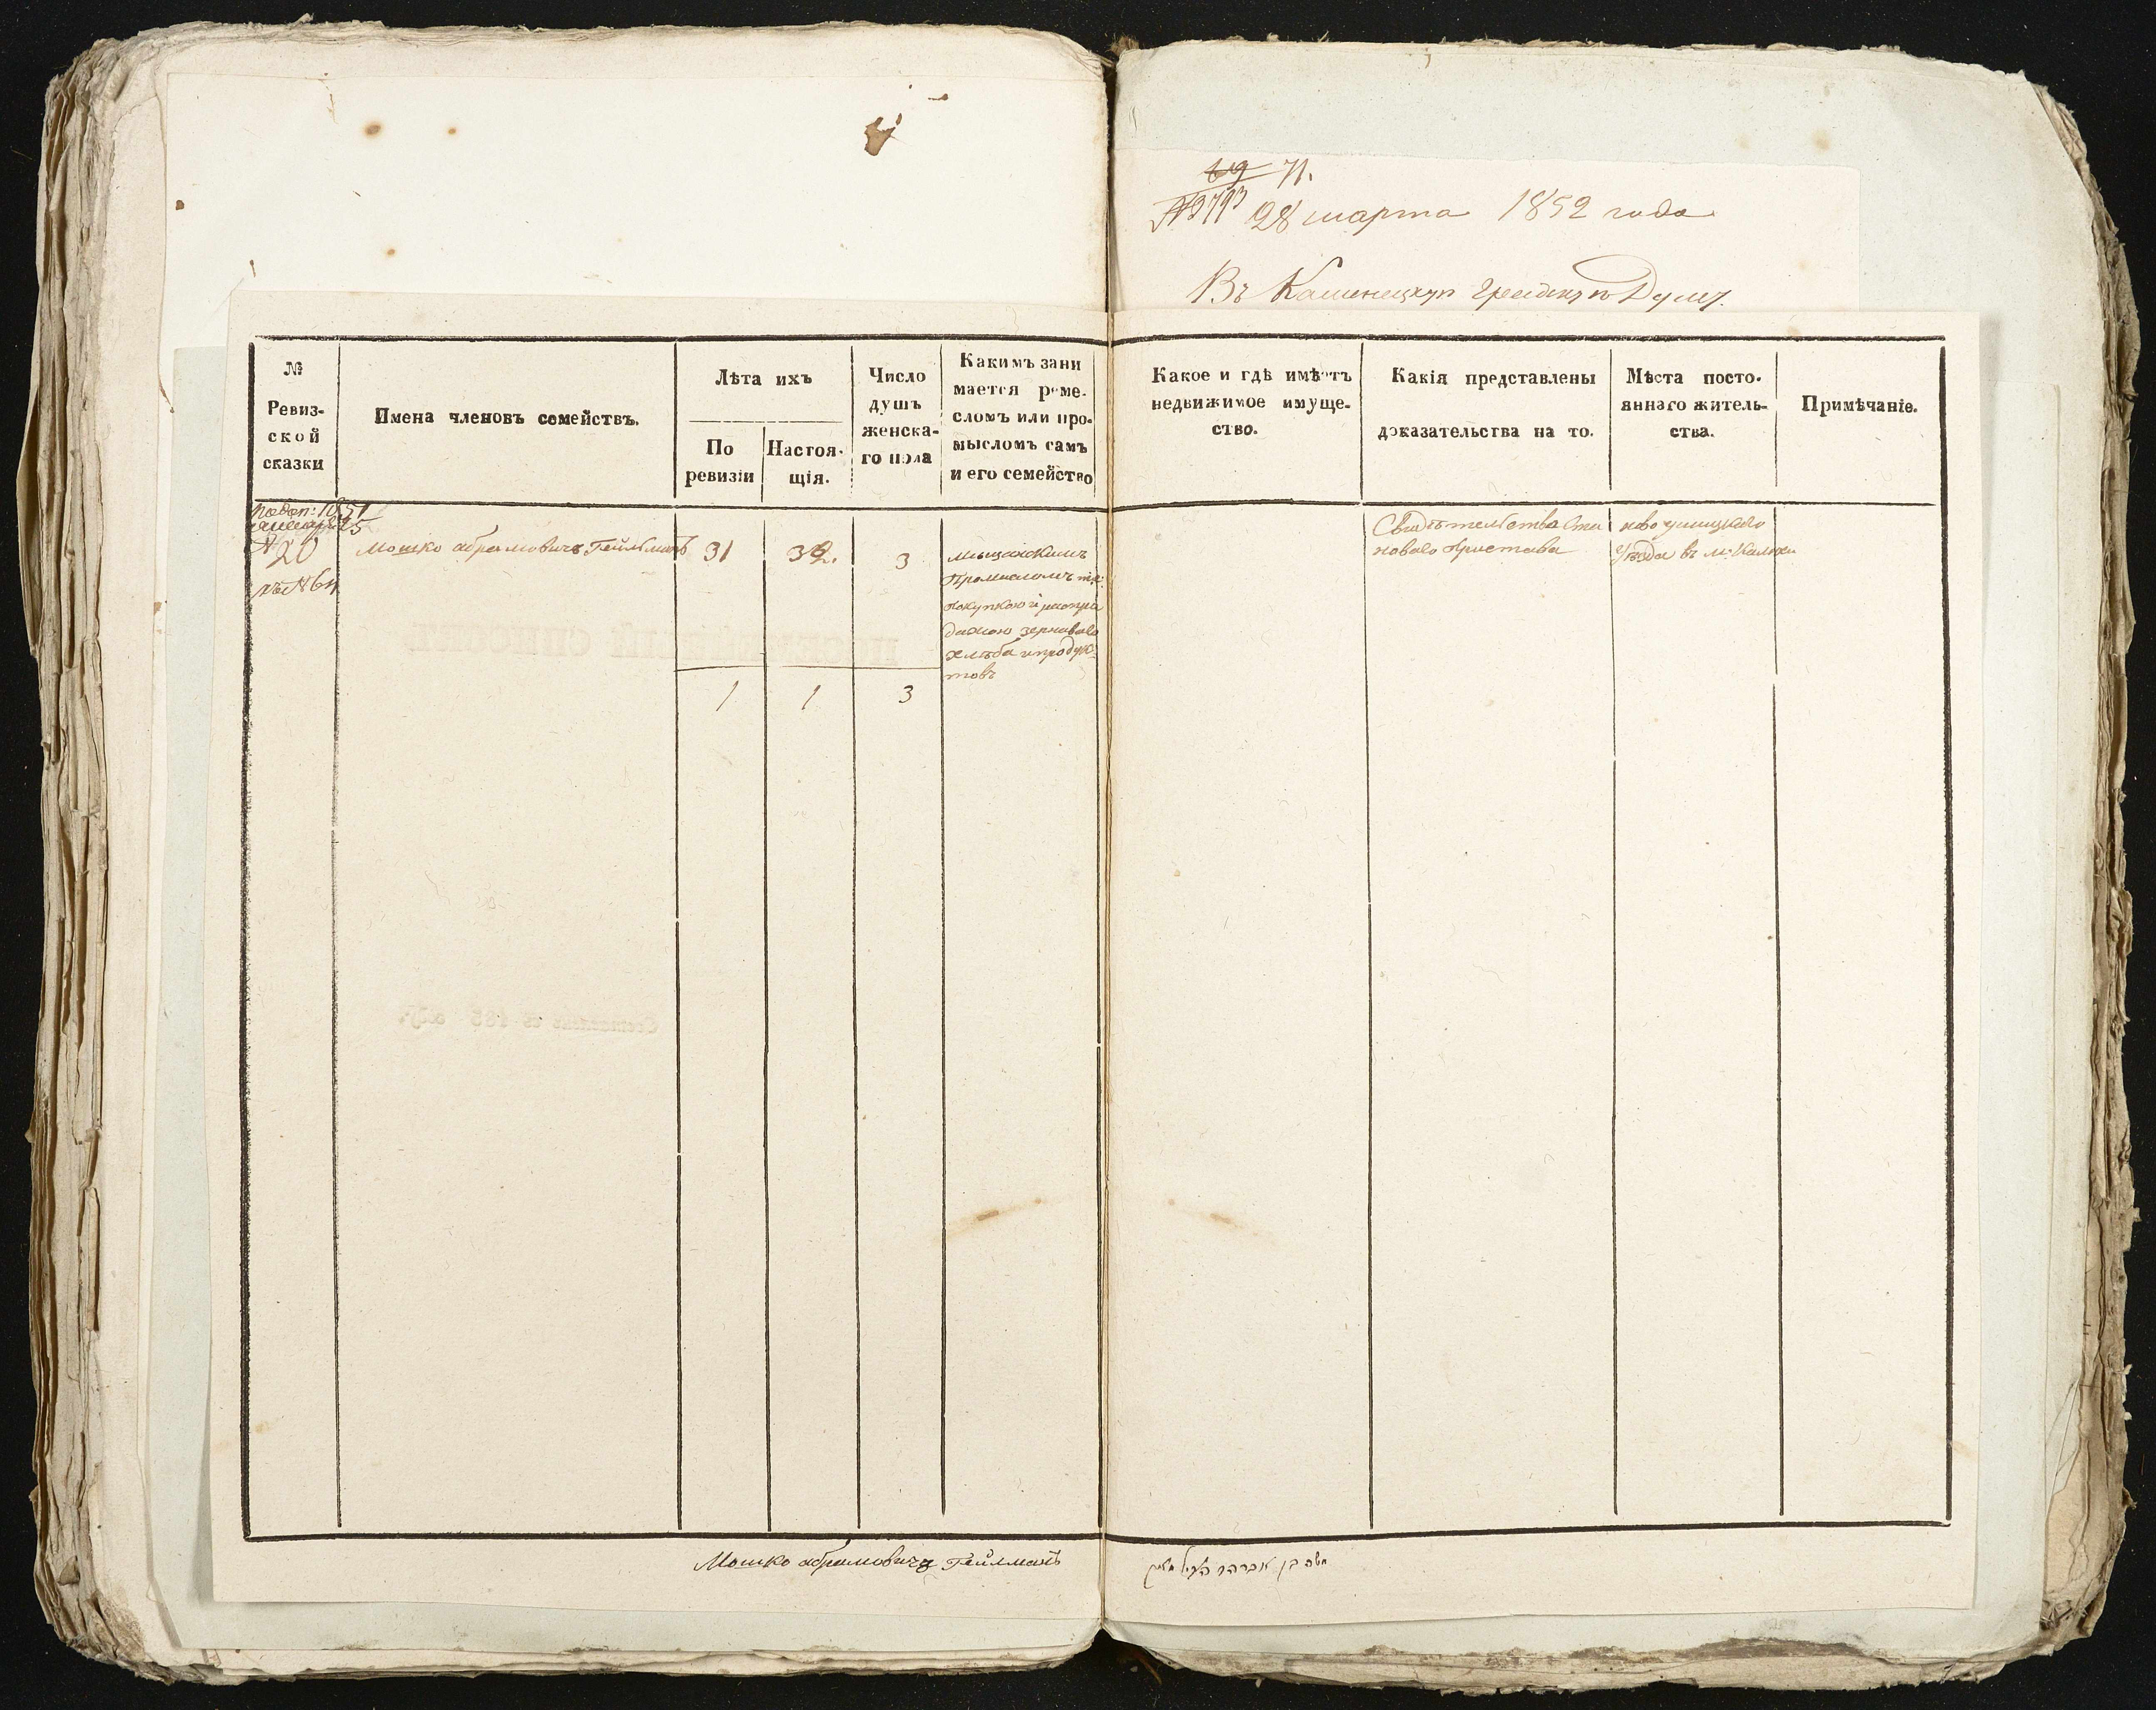 69 71.
28 марта 1852 года
Въ Каменецкую Градскую Думу.
№ Ревиз-
ской
сказки
Имена членовъ семействъ.
Лѣта ихъ
По
ревизіи
Настоя-
щія.
Число
душъ
женска-
го пола
Какимъ зани
мается реме-
сломъ или про-
мысломъ самъ
и его семейство
Какое и гдѣ имѣетъ
недвижимое имуще-
ство.
Какія представлены
доказательства на то.
Мѣста посто-
яннаго житель-
ства.
Примѣчаніе.
1851
25
20
Мошко абрамовичъ Гейльманъ 31 32. 3
мыщанскимъ
Промысломъ
покупкою и распро
дажою зерноваго
хлѣба и продук-
товъ
Свидѣтельства Ста
новаго Пристава
ново ушицкого
Уѣзда въ м.
1 1 3
Мошко абрамовичъ Гейлманъ
משה בן אברהם היילמאן